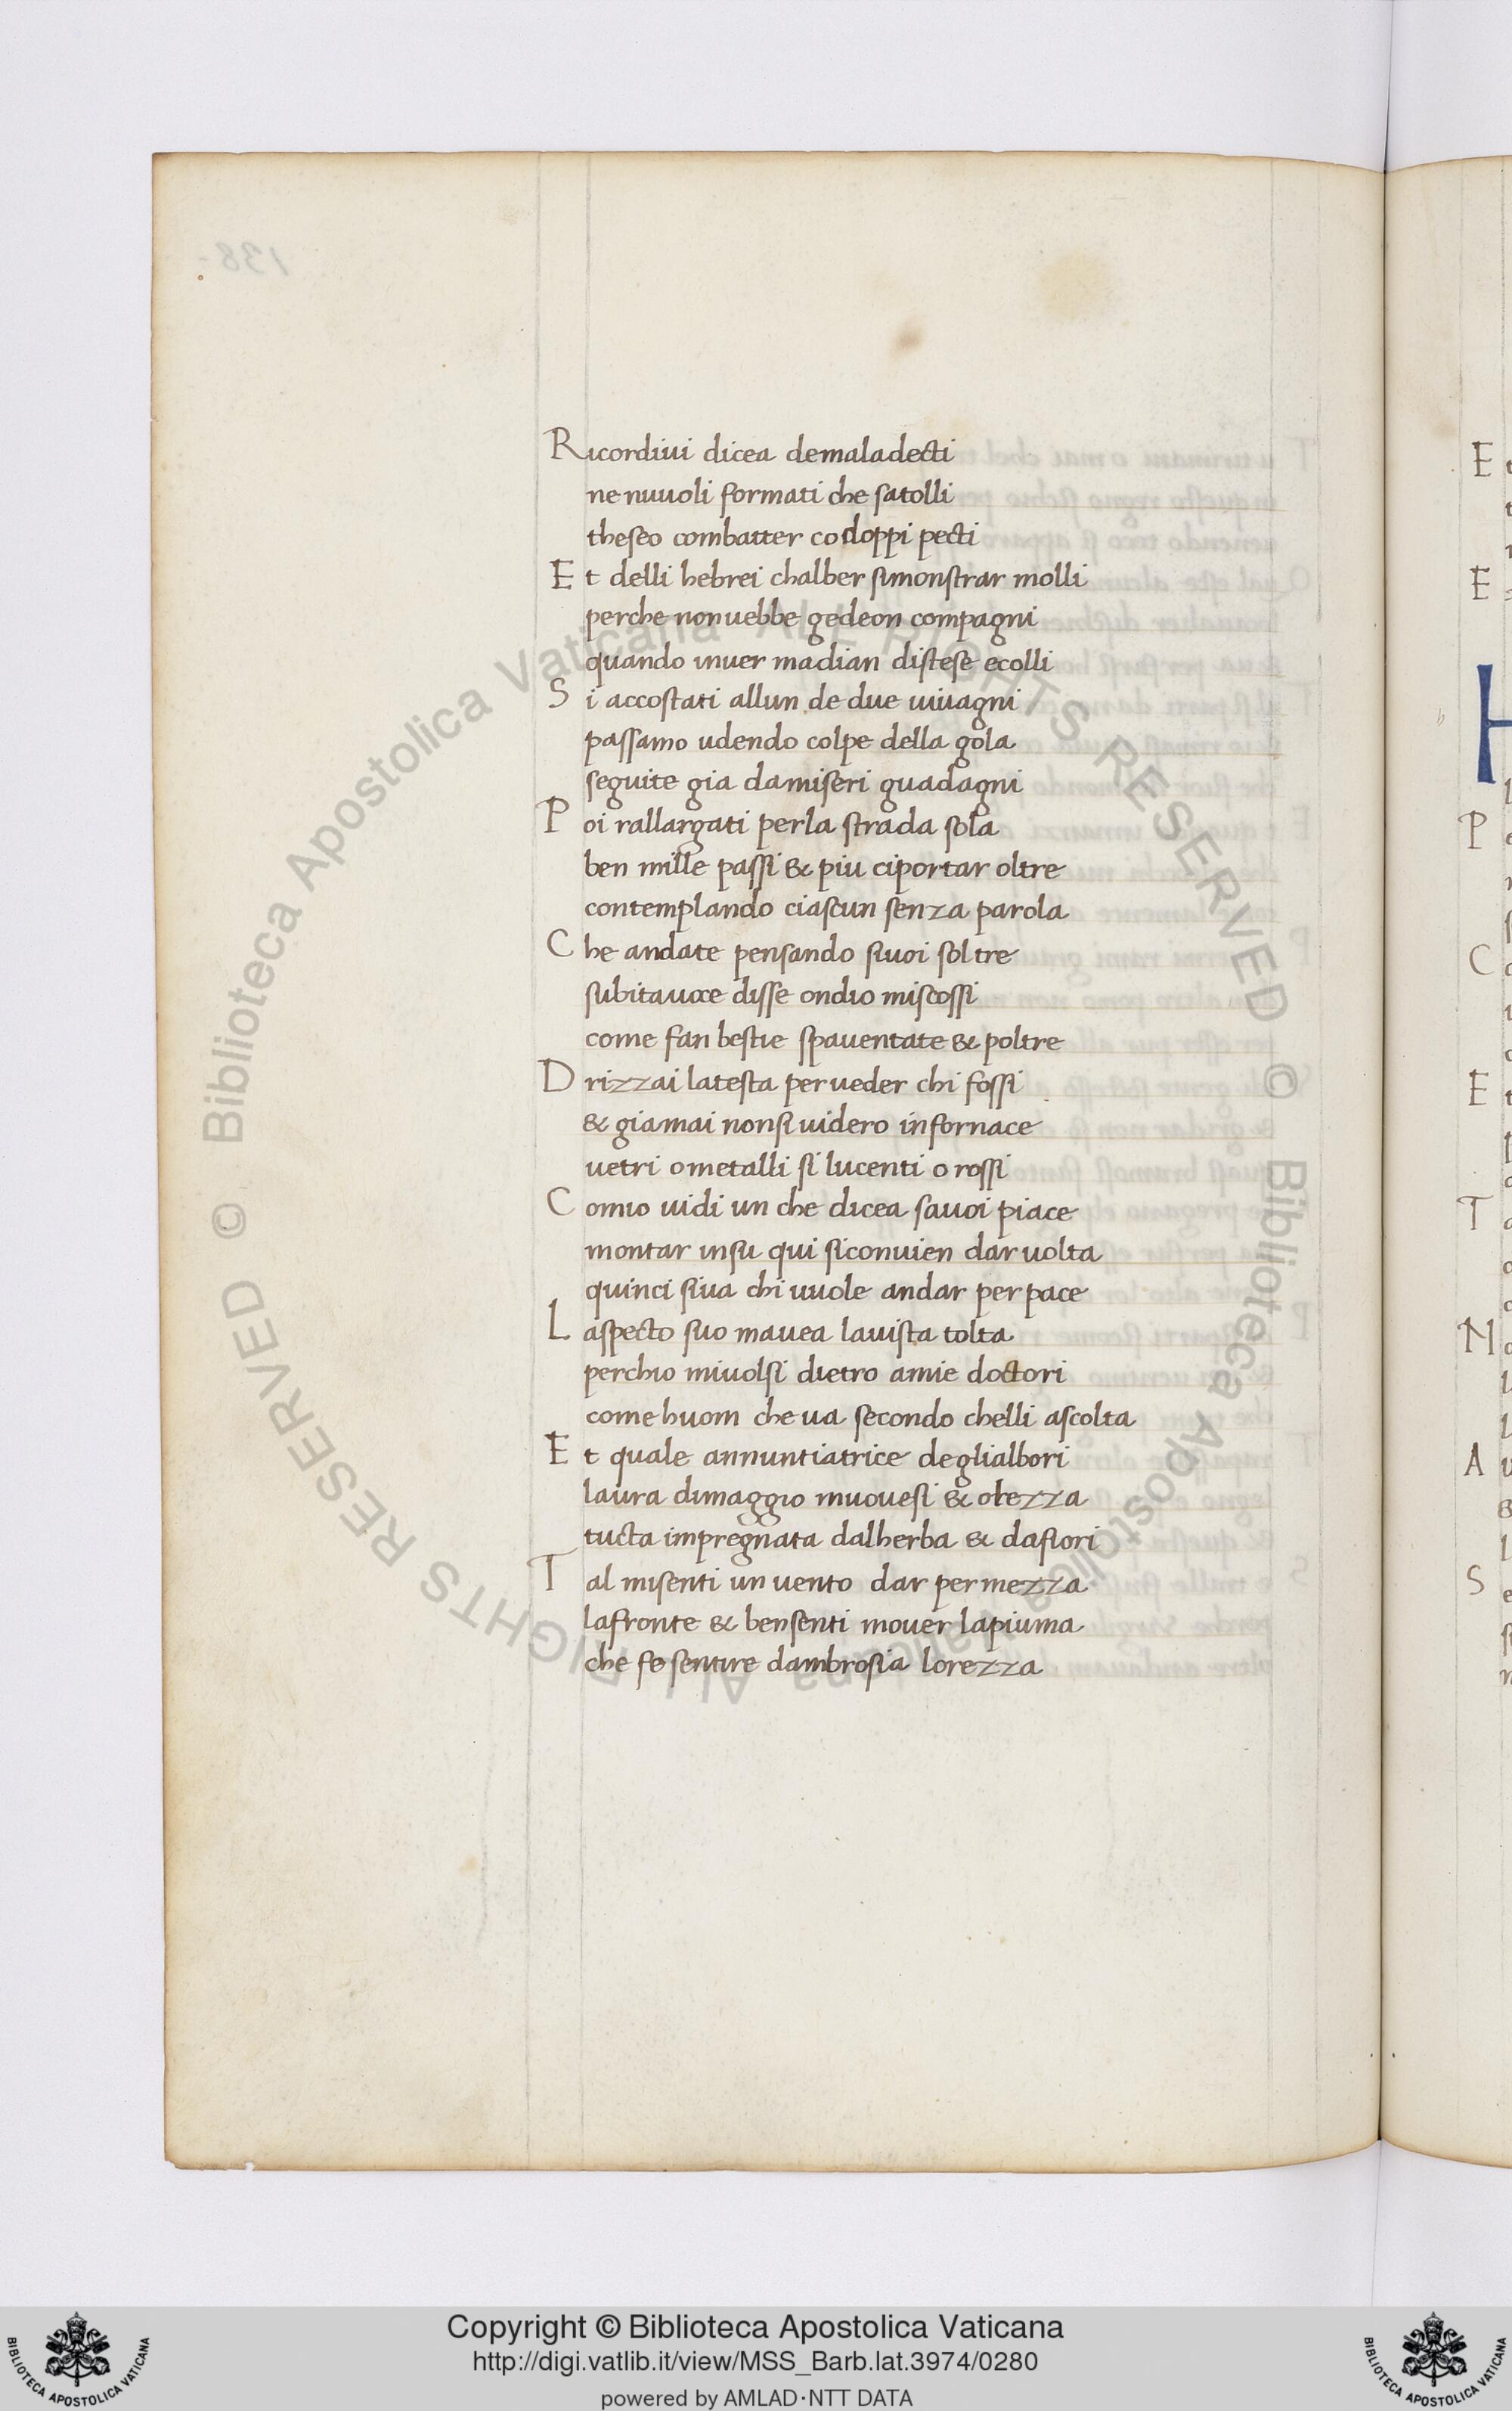 Ricordiui dicea demaladecti
ne nuuoli formati che satolli
theseo combatter codoppi pecti
Et delli hebrei chalber simonstrar molli
perche nonuebbe gedeon compagni
quando inuer madian distese ecolli
Si accostati allun de due uiuagni
passamo udendo colpe della gola
seguite gia damiseri guadagni
Poi rallargati perla strada sola
ben mille passi & piu ciportar oltre
contemplando ciascun senza parola
Che andate pensando siuoi sol tre
subitauoce disse ondio miscossi
come fan bestie spauentate & poltre
Drizzai latesta per ueder chi fossi
& giamai nonsi uidero infornace
uetri ometalli si lucenti o rossi
Comio uidi un che dicea sauoi piace
montar insu qui siconuien dar uolta
quinci siua chi uuole andar per pace
Laspecto suo mauea lauista tolta
perchio miuolsi dietro amie doctori
come huom che ua secondo chelli ascolta
Et quale annuntiatrice deglialbori
laura dimaggio muouesi & olezza
tucta impregnata dalherba & dafiori
Tal misenti un uento dar permezza
lafronte & bensenti mouer lapiuma
che fe sentire dambrosia lorezza
138
E
E
H
P
C
E
T
N
A
S
© Biblioteca Apostolica Vaticana ALL RIGHTS RESERVED © Biblioteca Apostolica Vaticana ALL RIGHTS RESERVED
Copyright © Biblioteca Apostolica Vaticana
http://digi.vatlib.it/view/MSS_Barb.lat.3974/0280
powered by AMLAD·NTT DATA
BIBLIOTECA APOSTOLICA VATICANA
BIBLIOTECA APOSTOLICA VATICANA